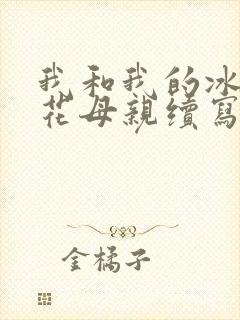 我和我的冰
花母親續寫
金橘子